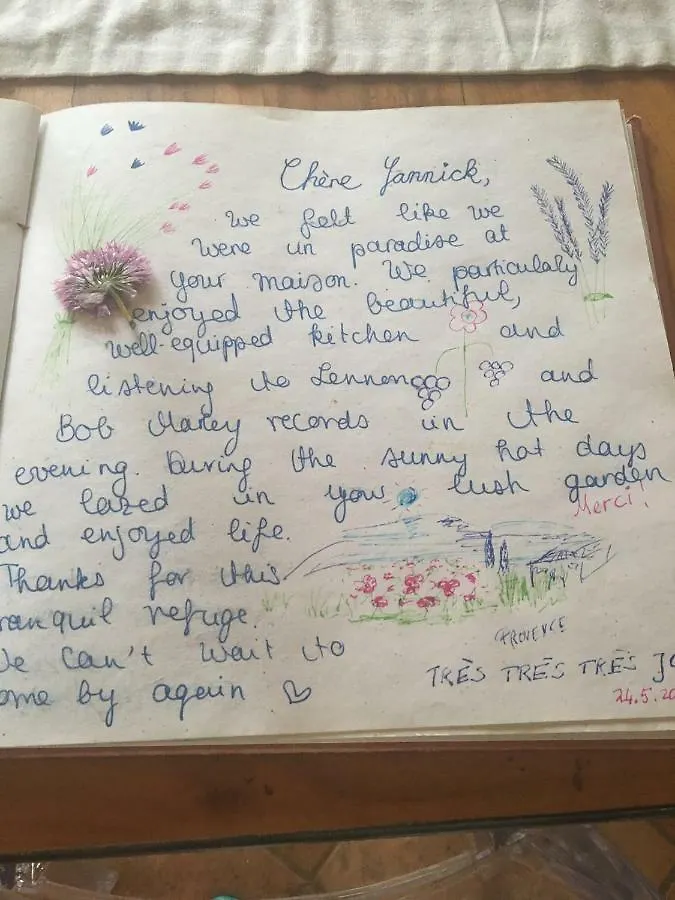 Chère Yannick,
we felt like we
were in paradise at
your maison. We particulaly
enjoyed the beautiful,
well-equipped kitchen and
listening to Lennon and
Bob Marley records in the
evening. During the sunny hot days
we lazed in your lush garden
Merci!
and enjoyed life.
Thanks for this
ranquil refuge.
We can't wait to
ome by again ♡
PROVENCE
TRÈS TRÉS TRÉS JO
24.5.20